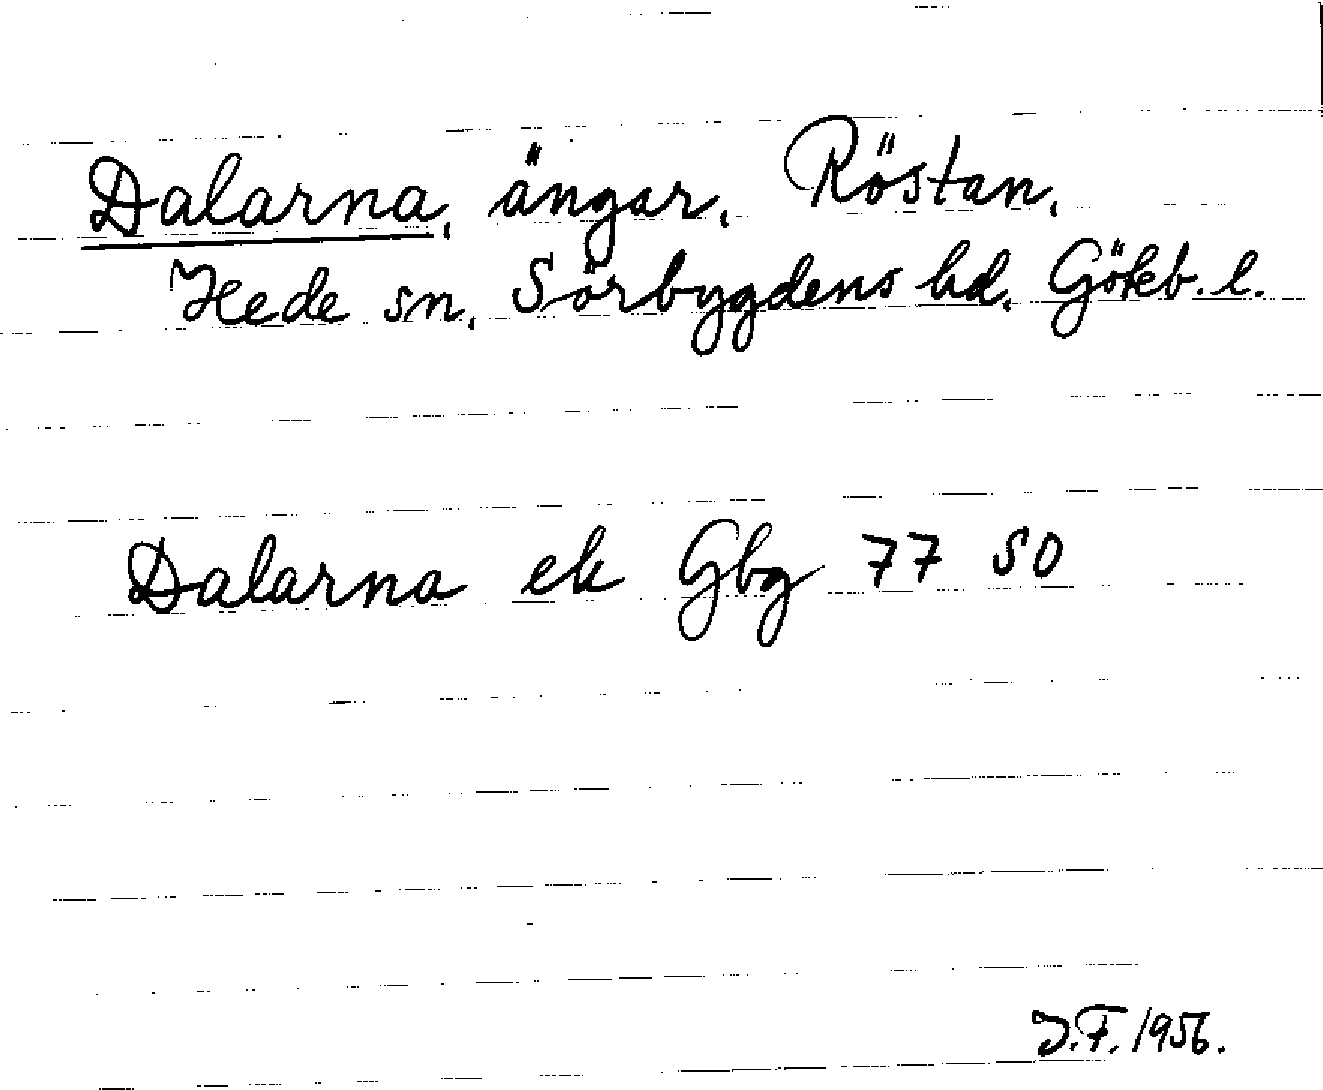 Dalarna, ängar, Röstan,
Hede sn, Sörbygdens hd, Göteb. l.
Dalarna ek Gbg 77 SO
J.F. 1956.